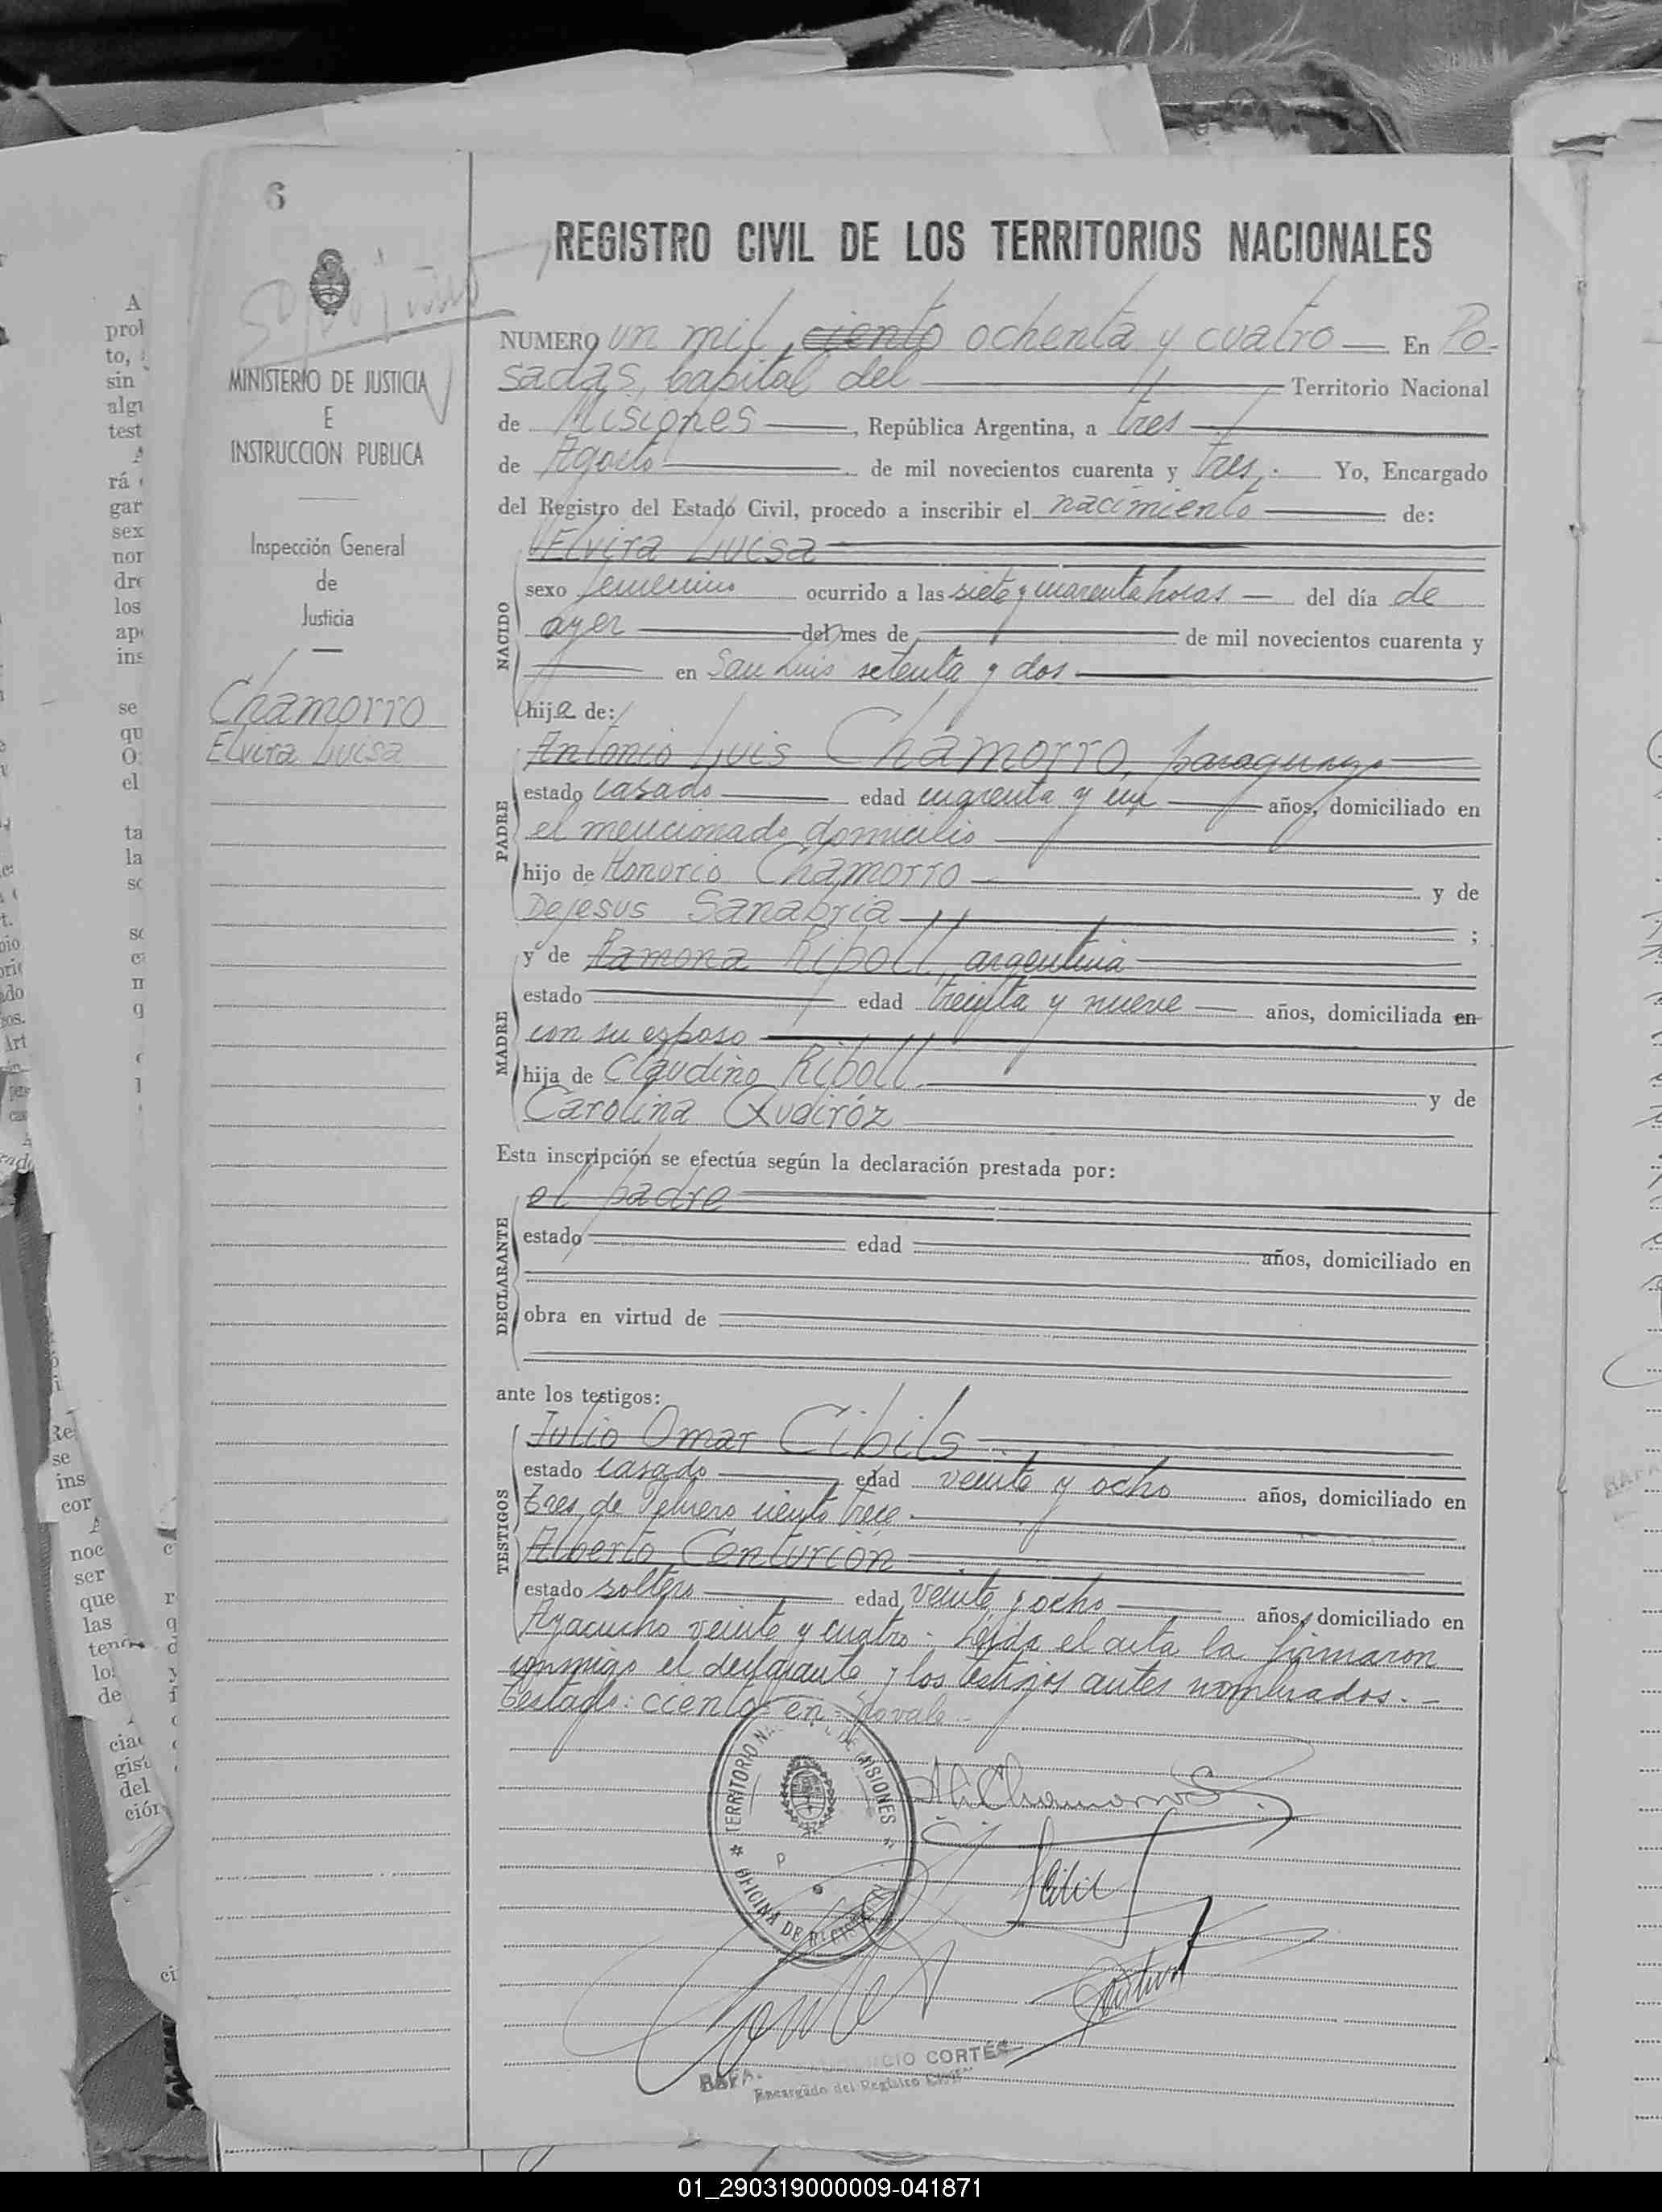 6
REGISTRO CIVIL DE LOS TERRITORIOS NACIONALES
MINISTERIO DE JUSTICIA
E
INSTRUCCION PUBLICA
Inspección General
de
Justicia
Chamorro
Elvira Luisa
NUMERO un mil ciento ochenta y cuatro — En Po-
sadas, Capital del Territorio Nacional
de Misiones, República Argentina, a tres
de Agosto de mil novecientos cuarenta y tres.- Yo, Encargado
del Registro del Estado Civil, procedo a inscribir el nacimiento de:
NACIDO
Elvira Luisa
sexo femenino ocurrido a las siete y cuarenta horas — del día de
ayer del mes de de mil novecientos cuarenta y
en San Luis setenta y dos
hija de:
PADRE
Antonio Luis Chamorro, paraguayo
estado casado edad cuarenta y un años, domiciliado en
el mencionado domicilio
hijo de Honorio Chamorro y de
Dejesus Sanabria ;
MADRE
y de Ramona Riboll, argentina
estado edad treinta y nueve años, domiciliada en
con su esposo
hija de Claudino Riboll y de
Carolina Qudiróz
Esta inscripción se efectúa según la declaración prestada por:
DECLARANTE
el padre
estado edad años, domiciliado en
obra en virtud de
ante los testigos:
TESTIGOS
Julio Omar Cibils
estado casado edad veinte y ocho años, domiciliado en
tres de Febrero ciento trece.
Alberto Centurión
estado soltero edad veinte y ocho años, domiciliado en
Ayacucho veinte y cuatro.- Leída el acta la firmaron
conmigo el declarante y los testigos antes nombrados.-
Testado: ciento= en= No vale.-
TERRITORIO DE MISIONES
OFICINA DE
CORTÉS
Encargado del Registro Civil
01_290319000009-041871